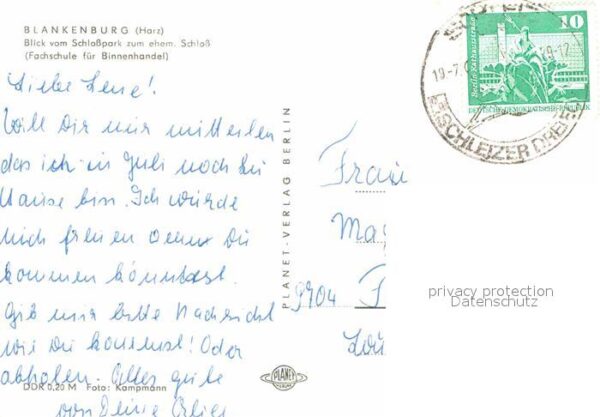 BLANKENBURG (Harz)
Blick vom Schloßpark zum ehem. Schloß
(Fachschule für Binnenhandel)
Liebe Lene!
Will Dir nur mitteilen
das ich in Juli noch zu
Hause bin. Ich würde
mich freuen wenn Du
kommen könntest.
Gib mir bitte Nachricht
wie Du kommst! Oder
abholen. Alles gute
von Deine
DDR 0,20 M Foto: Kampmann
PLANET-VERLAG BERLIN
PLANET
VERLAG
10
Berlin, Rathausstraße
DEUTSCHE DEMOKRATISCHE REPUBLIK
19-7
SCHLEIZER DREIE
Frau
9704
privacy protection
Datenschutz